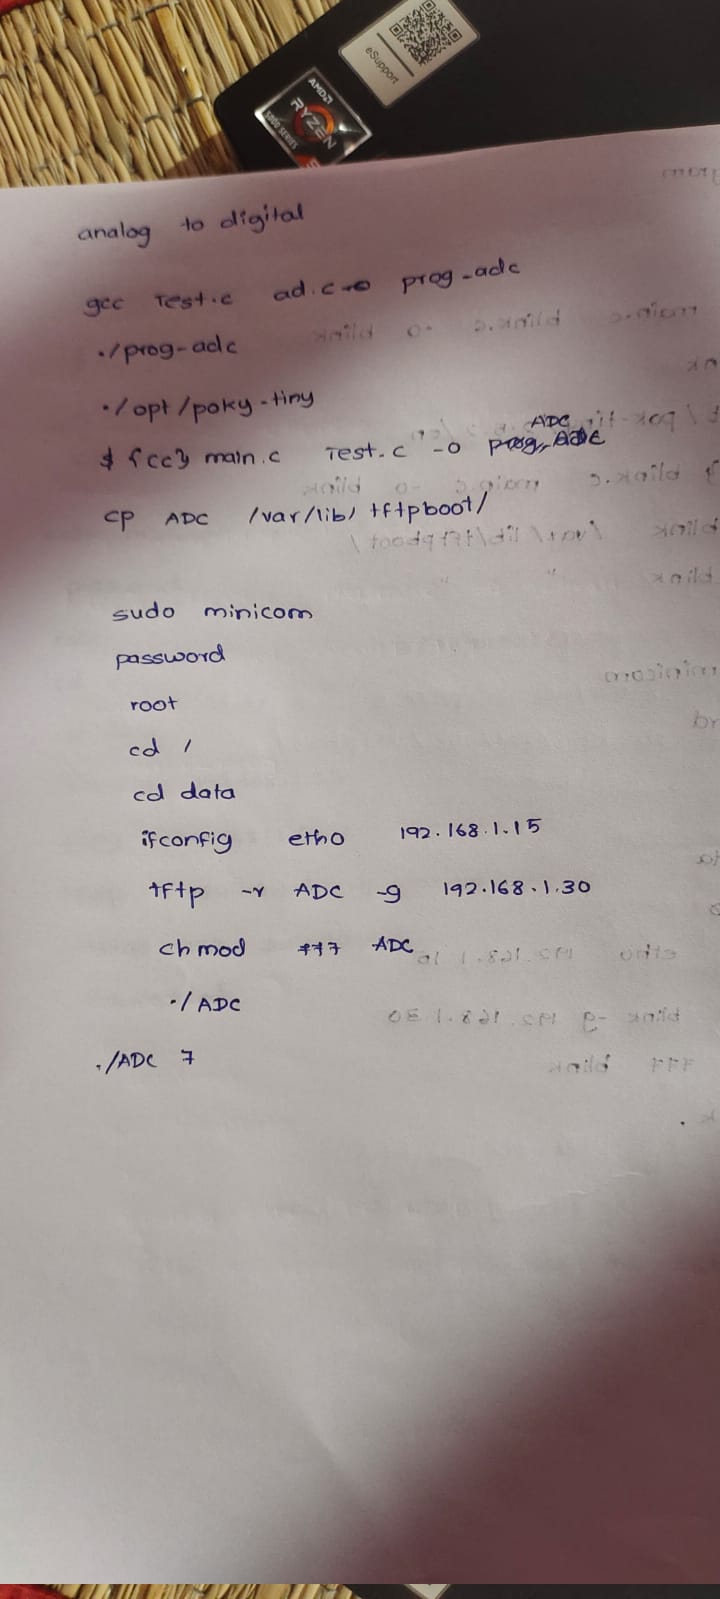 eSupport
AMD
RYZEN
5000 SERIES
analog to digital
gcc Test.c ad.c -o prog-adc
./prog-adc
./opt/poky-tiny
$ {cc} main.c Test.c -o ADC
cp ADC /var/lib/tftpboot/
sudo minicom
password
root
cd /
cd data
ifconfig etho 192.168.1.15
tftp -r ADC -g 192.168.1.30
chmod 777 ADC
./ADC
./ADC 7